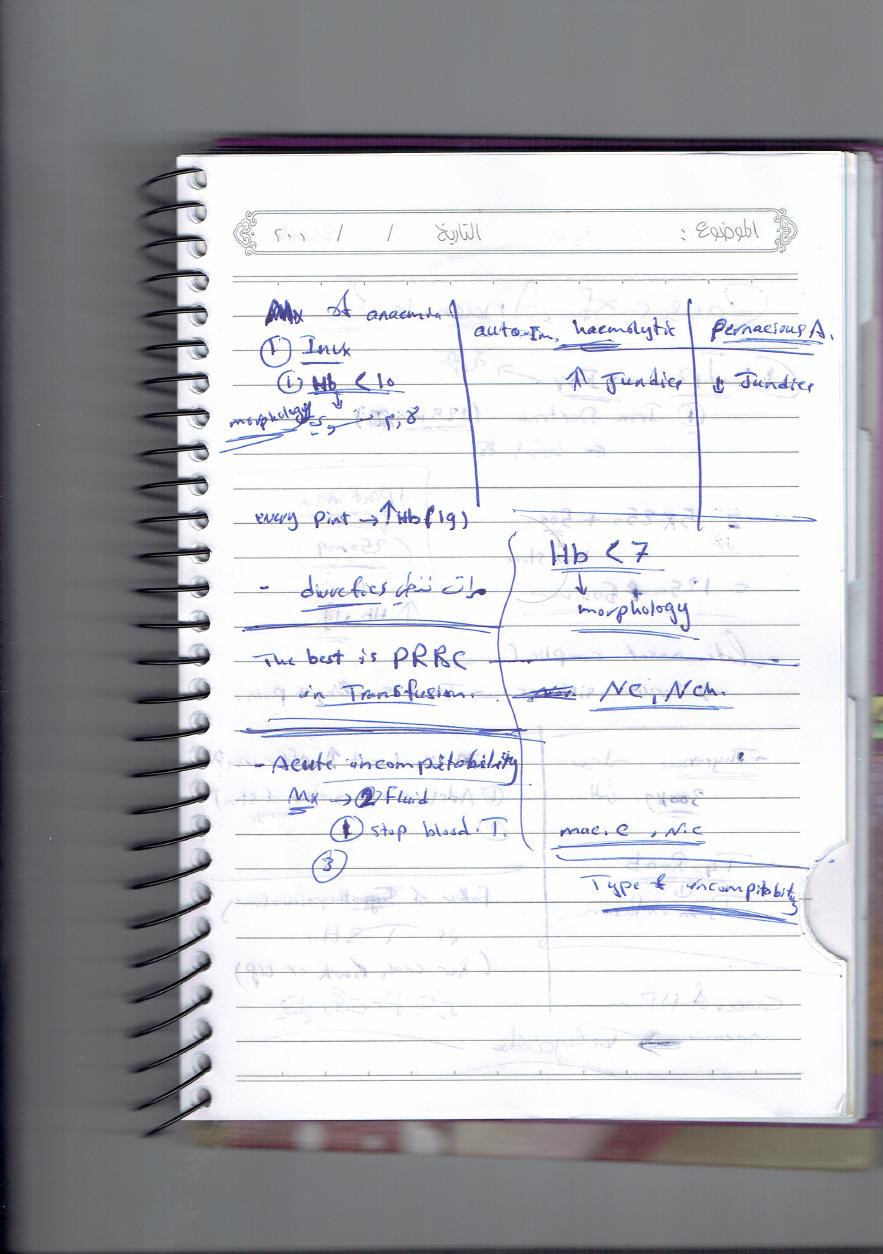 الموضوع : التاريخ / /
Mx of anaemia
① Invx
① Hb < 10
↓
morphology
every pint → ↑ Hb (1g)
- diuretics
The best is PRBC
in Transfusion.
- Acute incompitability
Mx → ② Fluid
① stop blood. T.
③
auto-Im, haemolytic
⇑ Jundice
pernacious A.
⇓ Jundice
Hb < 7
↓
morphology
NC, Nch.
mac. c , N.c
Type of incompitabity